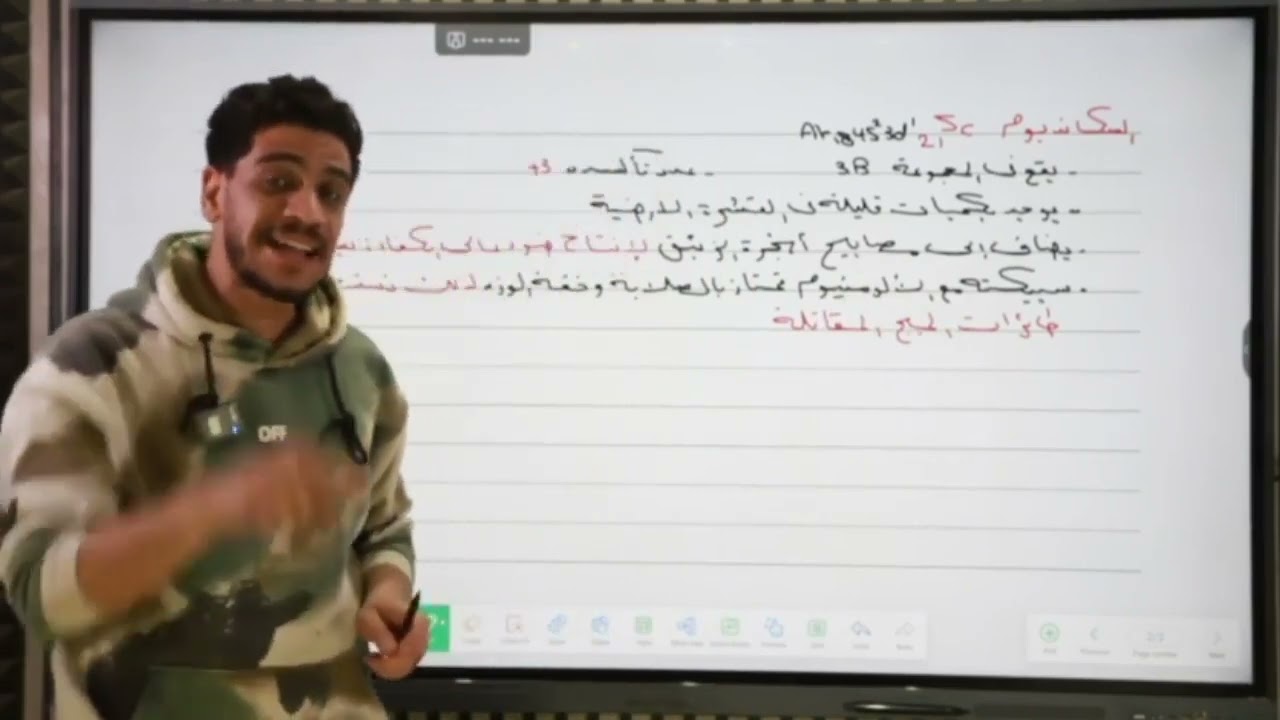 السكانديوم ₂₁Sc Ar₁₈4S²3d¹
- يقع في المجموعة 3B - عدد تأكسده +3
- يوجد بكميات قليلة في القشرة الارضية
- يضاف إلى مصابيح أبخرة الزئبق لإنتاج ضوء عالي الكفاءة
- سبيكته مع الألومنيوم تمتاز بالصلابة وخفة الوزن لذلك تستخدم
طائرات الميج المقاتلة
OFF